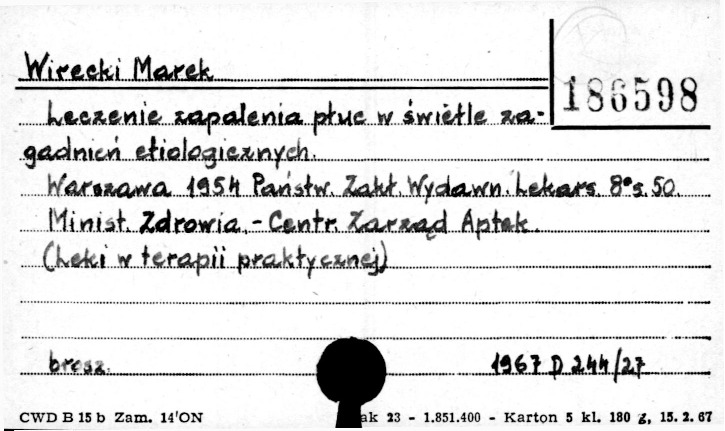 Wirecki Marek
186598
Leczenie zapalenia płuc w świetle za-
gadnień etiologicznych.
Warszawa 1954 Państw. Zakł. Wydawn. Lekars. 8° s. 50.
Minist. Zdrowia. - Centr. Zarząd Aptek.
(Leki w terapii praktycznej)
brosz. 1967 D 244/27
CWD B 15 b Zam. 14'ON ak 23 - 1.851.400 - Karton 5 kl. 180 g, 15. 2. 67